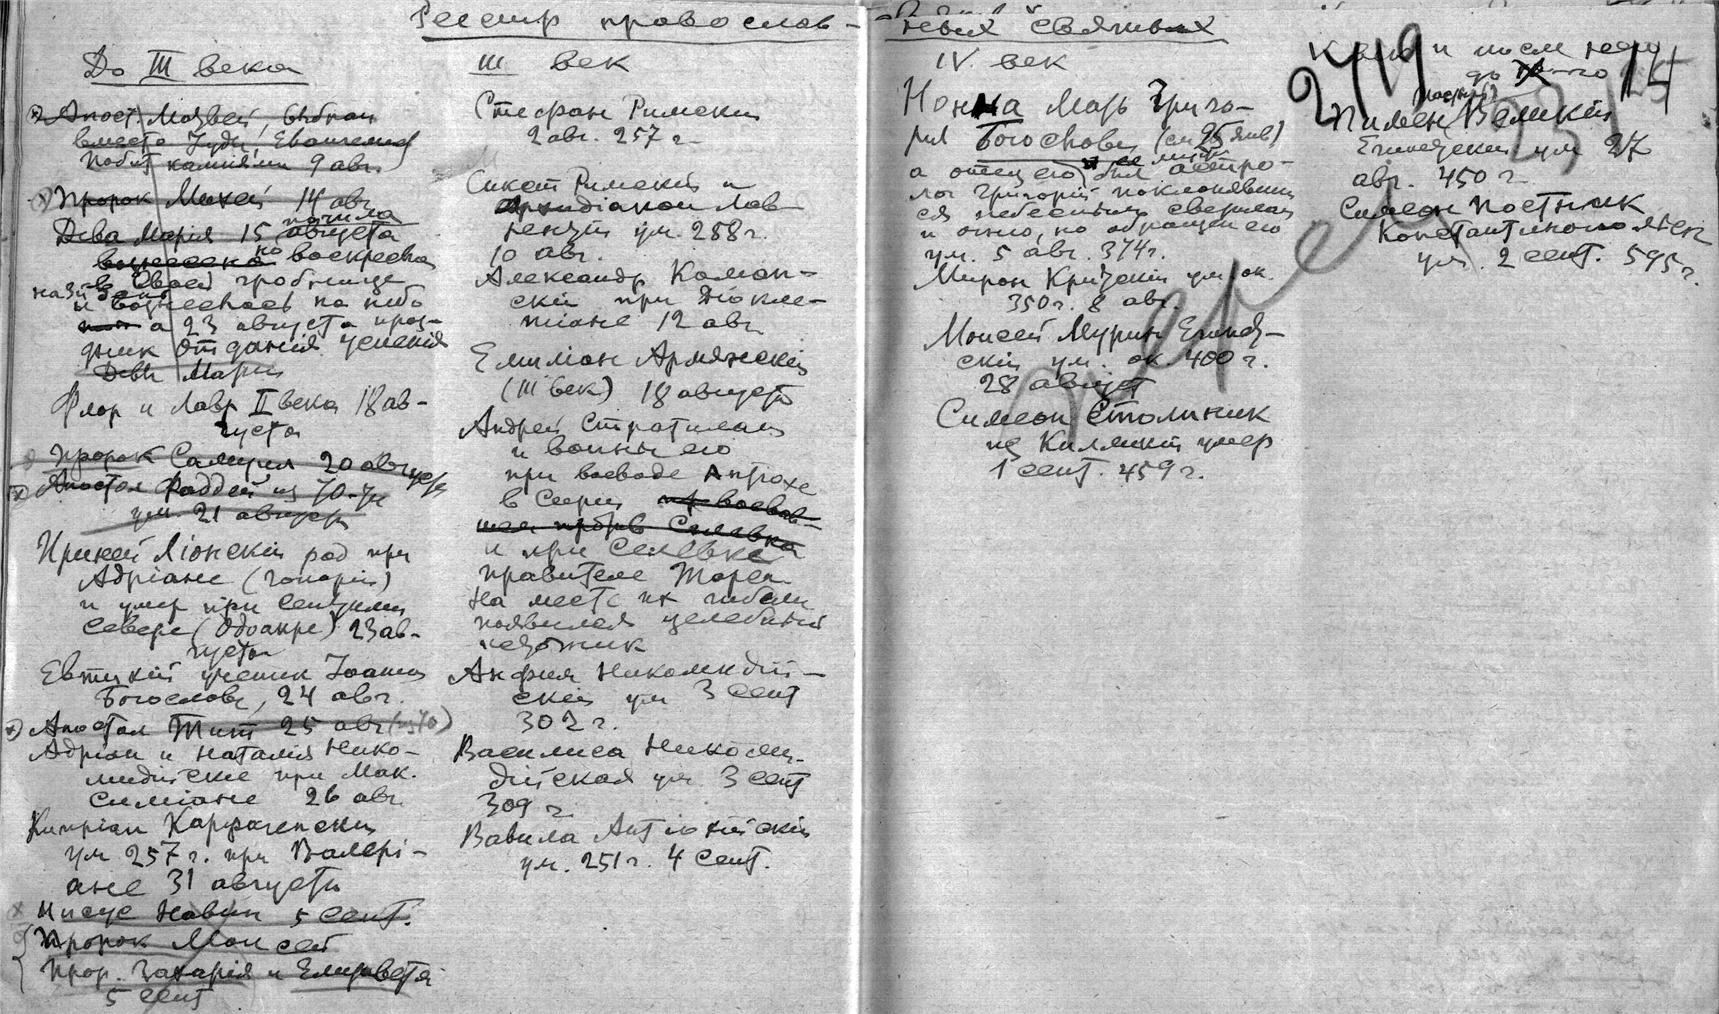 Реестр православ-
ных святых
До III века
Апост. Матвей, выбран
вместо Иуды, Евангелист
побит камнями 9 авг.
Пророк Михей 14 авг
почила
Дева Мария 15 августа
но воскресла
в своей гробнице
на 3й день
и вознеслась на небо
а 23 августа праз-
дник отдания успения
Девы Марии
Флор и Лавр II века 18 ав-
густа
Пророк Самуил 20 август
Апостол Фаддей из 70-ти
ум. 21 август
Ириней Лионский род при
Адриане (Гонорий)
и умер при Септимии
Севере (Одоакре) 23 ав-
густа
Евтихий ученик Иоанна
Богослова, 24 авг.
Апостол Тит 25 авг (из 70)
Адриан и Наталия Нико-
мидийские при Мак.
симиане 26 авг.
Киприан Карфагенский
ум 257 г. при Валері-
ане 31 августа
Иисус Навин 5 сент.
Пророк Моисей
Прор. Захарія и Елизавета
5 сент
III век
Стефан Римский
2 авг. 257 г
Сикст Римский и
Архидіакон Лав
рентій ум. 258 г.
10 авг.
Александр Коман-
скій при Діокле-
тіане 12 авг
Емиліан Армянскій
(III век) 18 августа
Андрей Стратилат
и воины его
при воеводе Антіохе
в Сирии
и при Селевке
правителе Тарса
На месте их гибели
появился целебный
источник
Анфим Никомидій-
скій ум 3 сент
302 г.
Василиса Никоми-
дійская ум. 3 сент
309 г.
Вавила Антіохійскій
ум. 251 г. 4 сент.
IV век
Нонна Мать Григо-
рия Богослова (см 25 янв)
а отец его был
Григорій поклонявший
ся небесным светилам
и огню, но обращен ею
ум. 5 авг. 374 г.
Мирон Критскій ум ок.
350 г. 8 авг.
Моисей Мурин Египет-
скій ум. ок. 400 г.
28 август
Симеон Столпник
из Киликіи умер
1 сент. 459 г.
V век и после него
до
2419
14
Пимен Великій
Египетский ум 27
авг. 450 г
Симеон постник
Константинополтск
ум. 2 сент. 595 г.